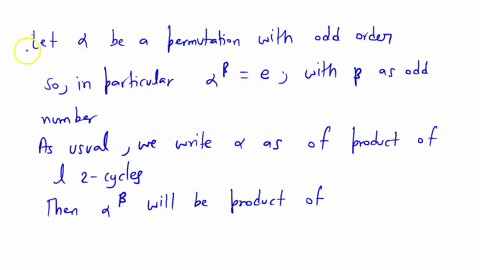 Let α be a permutation with odd order
So, in particular α^β = e ; with β as odd
number
As usual, we write α as of product of
l 2-cycles
Then α^β will be product of